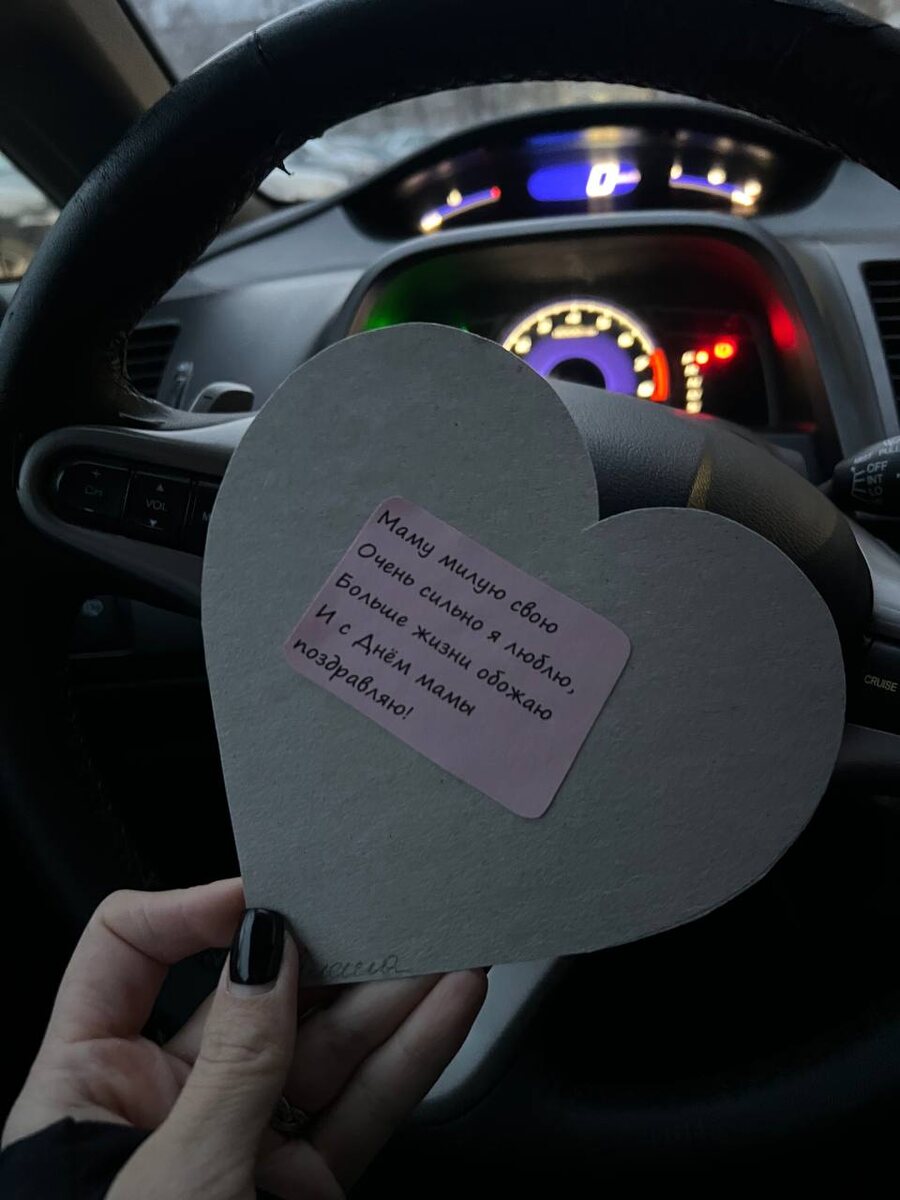 0
CH
VOL
OFF
INT
CRUISE
Маму милую свою
Очень сильно я люблю,
Больше жизни обожаю
И с Днём мамы
поздравляю!